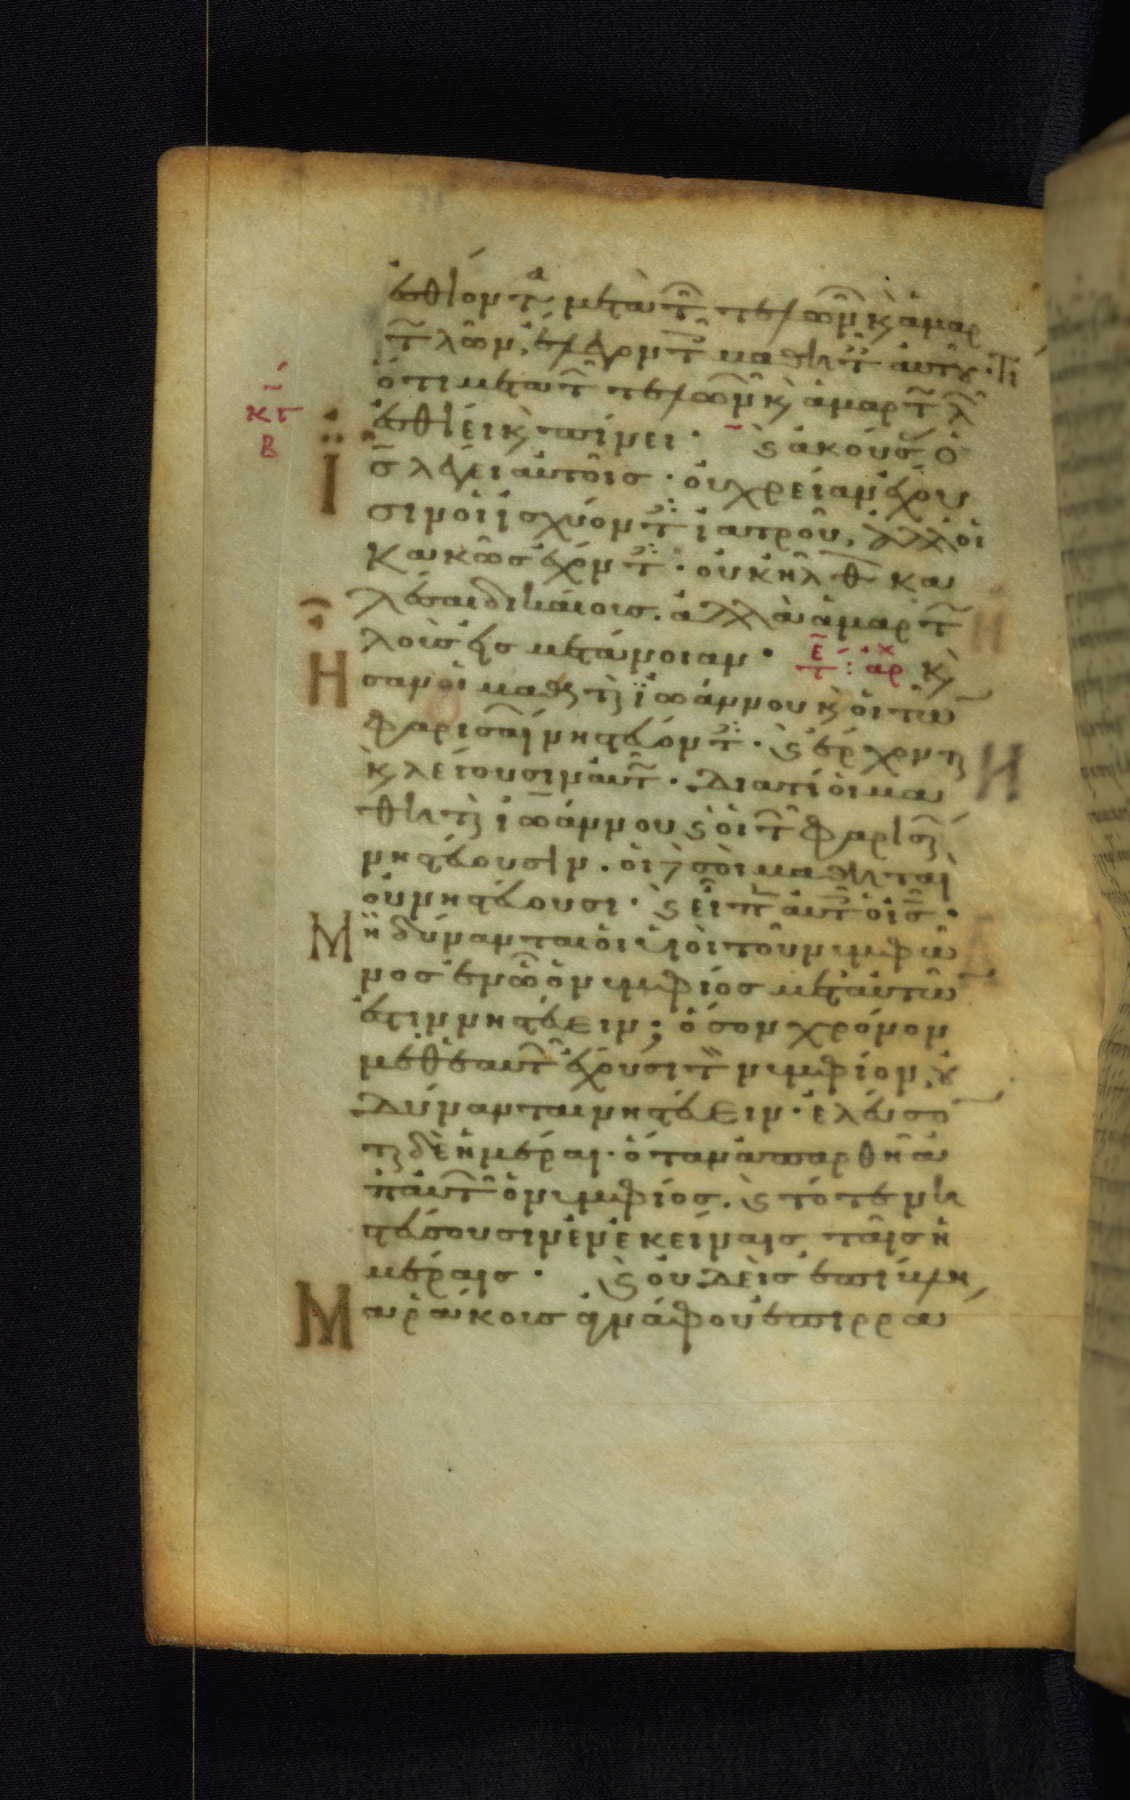 ἐσθίοντα μετὰ τῶν τελωνῶν κὶ ἁμαρ
τωλῶν, ἔλεγον τοῖς μαθηταῖς αὐτοῦ· τί
ὅτι μετὰ τῶν τελωνῶν κὶ ἁμαρτωλῶν
ἐσθίει κὶ πίνει· κὶ ἀκούσας ὁ
Ἰς λέγει αὐτοῖς· οὐ χρείαν ἔχου
σιν οἱ ἰσχύοντες ἰατροῦ, ἀλλ' οἱ
κακῶς ἔχοντες· οὐκ ἦλθον κα
λέσαι δικαίους. ἀλλὰ ἁμαρτω
λοὺς εἰς μετάνοιαν· κὶ
Ἦσαν οἱ μαθηταὶ ἰωάννου κὶ οἱ τῶν
φαρισαίων νηστεύοντες· κὶ ἔρχονται
κὶ λέγουσιν αὐτῷ· διατί οἱ μα
θηταὶ ἰωάννου κὶ οἱ τῶν φαρισαίων
νηστεύουσιν. οἱ δὲ σοὶ μαθηταὶ
οὐ νηστεύουσι· κὶ εἶπεν αὐτοῖς ὁ ις·
Μὴ δύνανται οἱ υἱοὶ τοῦ νυμφῶ
νος ἐν ᾧ ὁ νυμφίος μετ' αὐτῶν
ἐστιν νηστεύειν; ὅσον χρόνον
μεθ' ἑαυτῶν ἔχουσι τὸν νυμφίον, οὐ
δύνανται νηστεύειν· ἐλεύσον
ται δὲ ἡμέραι· ὅταν ἀπαρθῇ ἀ
π' αὐτῶν ὁ νυμφίος. κὶ τότε νη
στεύσουσιν ἐν ἐκείναις ταῖς ἡ
μέραις· κὶ οὐδεὶς ἐπίβλη
Μα ῥάκους ἀγνάφου ἐπιρρά